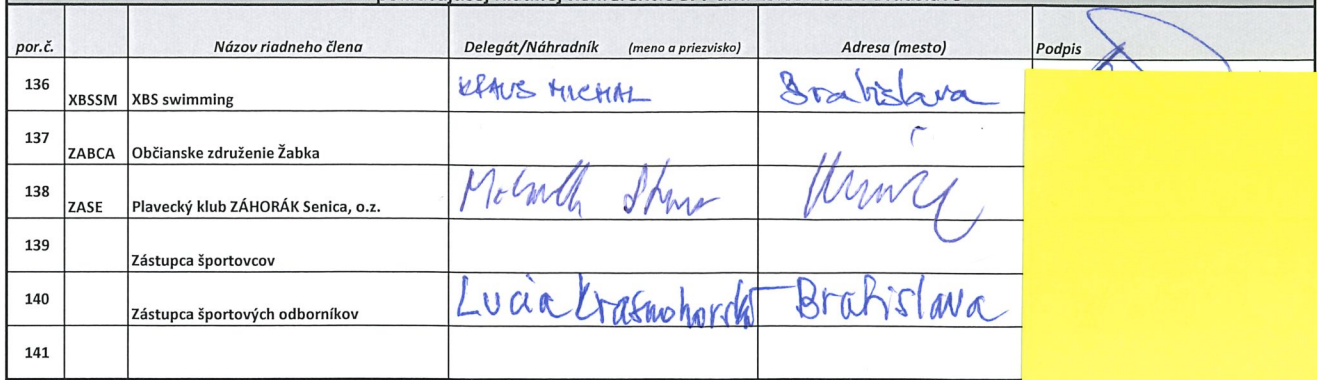 por.č. Názov riadneho člena Delegát/Náhradník (meno a priezvisko) Adresa (mesto) Podpis
136 XBSSM XBS swimming KRAUS MICHAL Bratislava
137 ZABCA Občianske združenie Žabka
138 ZASE Plavecký klub ZÁHORÁK Senica, o.z.
139 Zástupca športovcov
140 Zástupca športových odborníkov Lucia Krasnohorská Bratislava
141